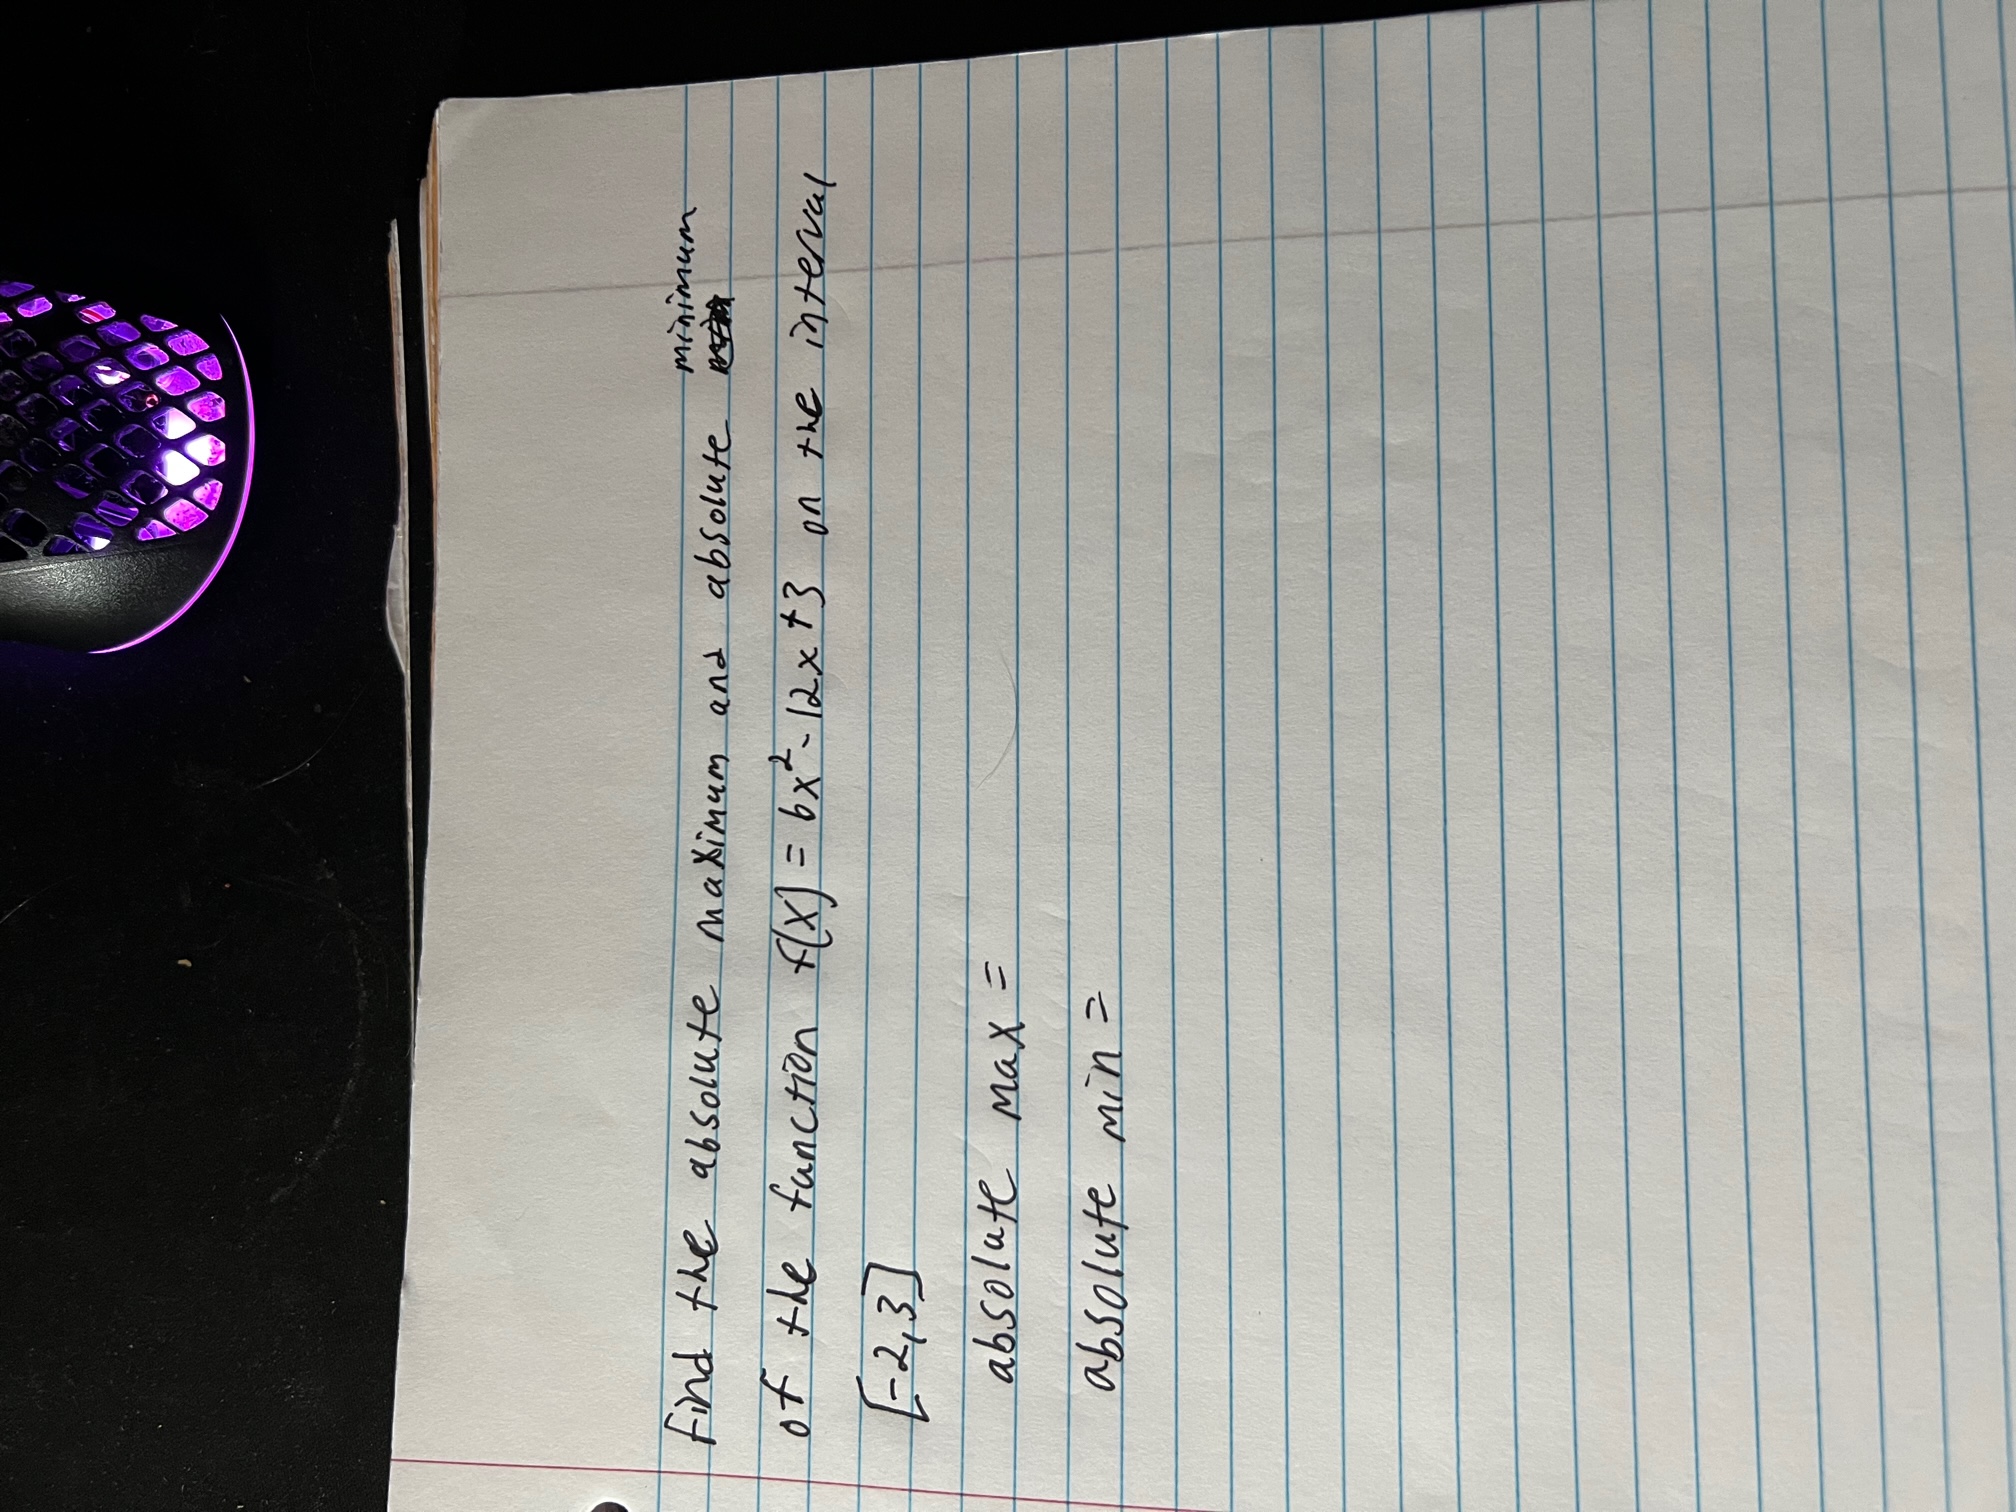 find the absolute maximum and absolute minimum
of the function f(x) = 6x² - 12x + 3 on the interval
[-2,3]
absolute max =
absolute min =